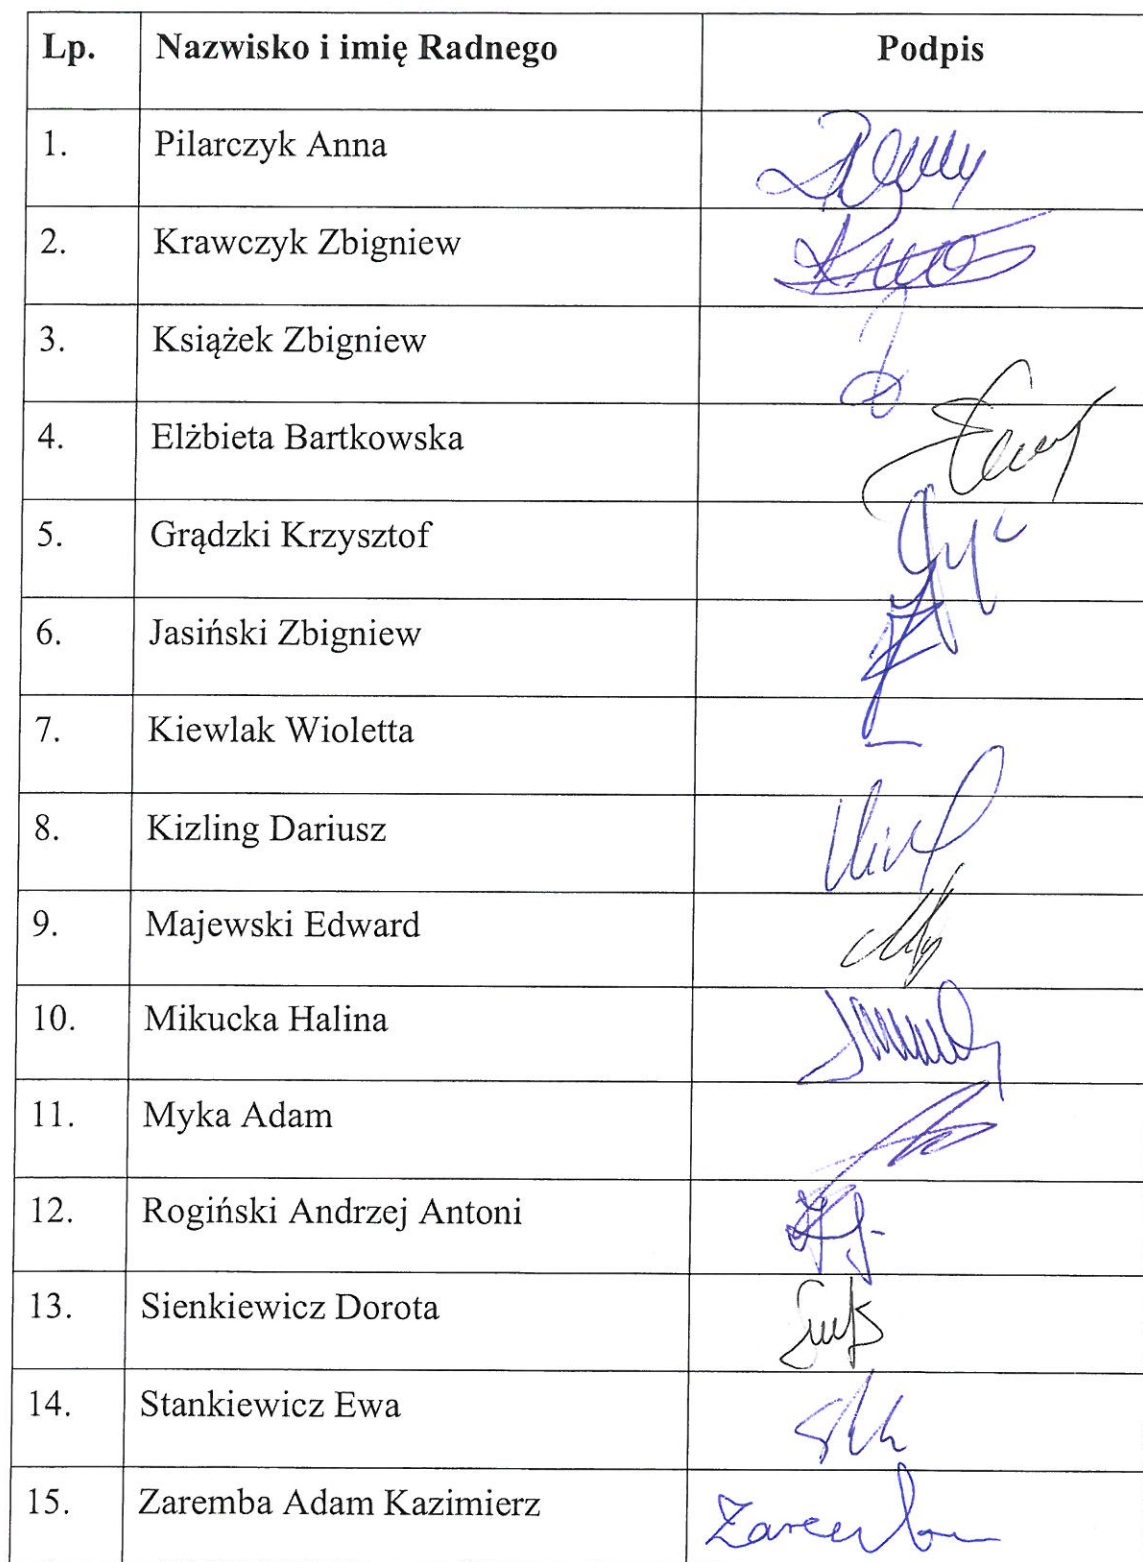 Lp. Nazwisko i imię Radnego Podpis
1. Pilarczyk Anna
2. Krawczyk Zbigniew
3. Książek Zbigniew
4. Elżbieta Bartkowska
5. Grądzki Krzysztof
6. Jasiński Zbigniew
7. Kiewlak Wioletta –
8. Kizling Dariusz
9. Majewski Edward
10. Mikucka Halina
11. Myka Adam
12. Rogiński Andrzej Antoni
13. Sienkiewicz Dorota
14. Stankiewicz Ewa
15. Zaremba Adam Kazimierz Zaremba